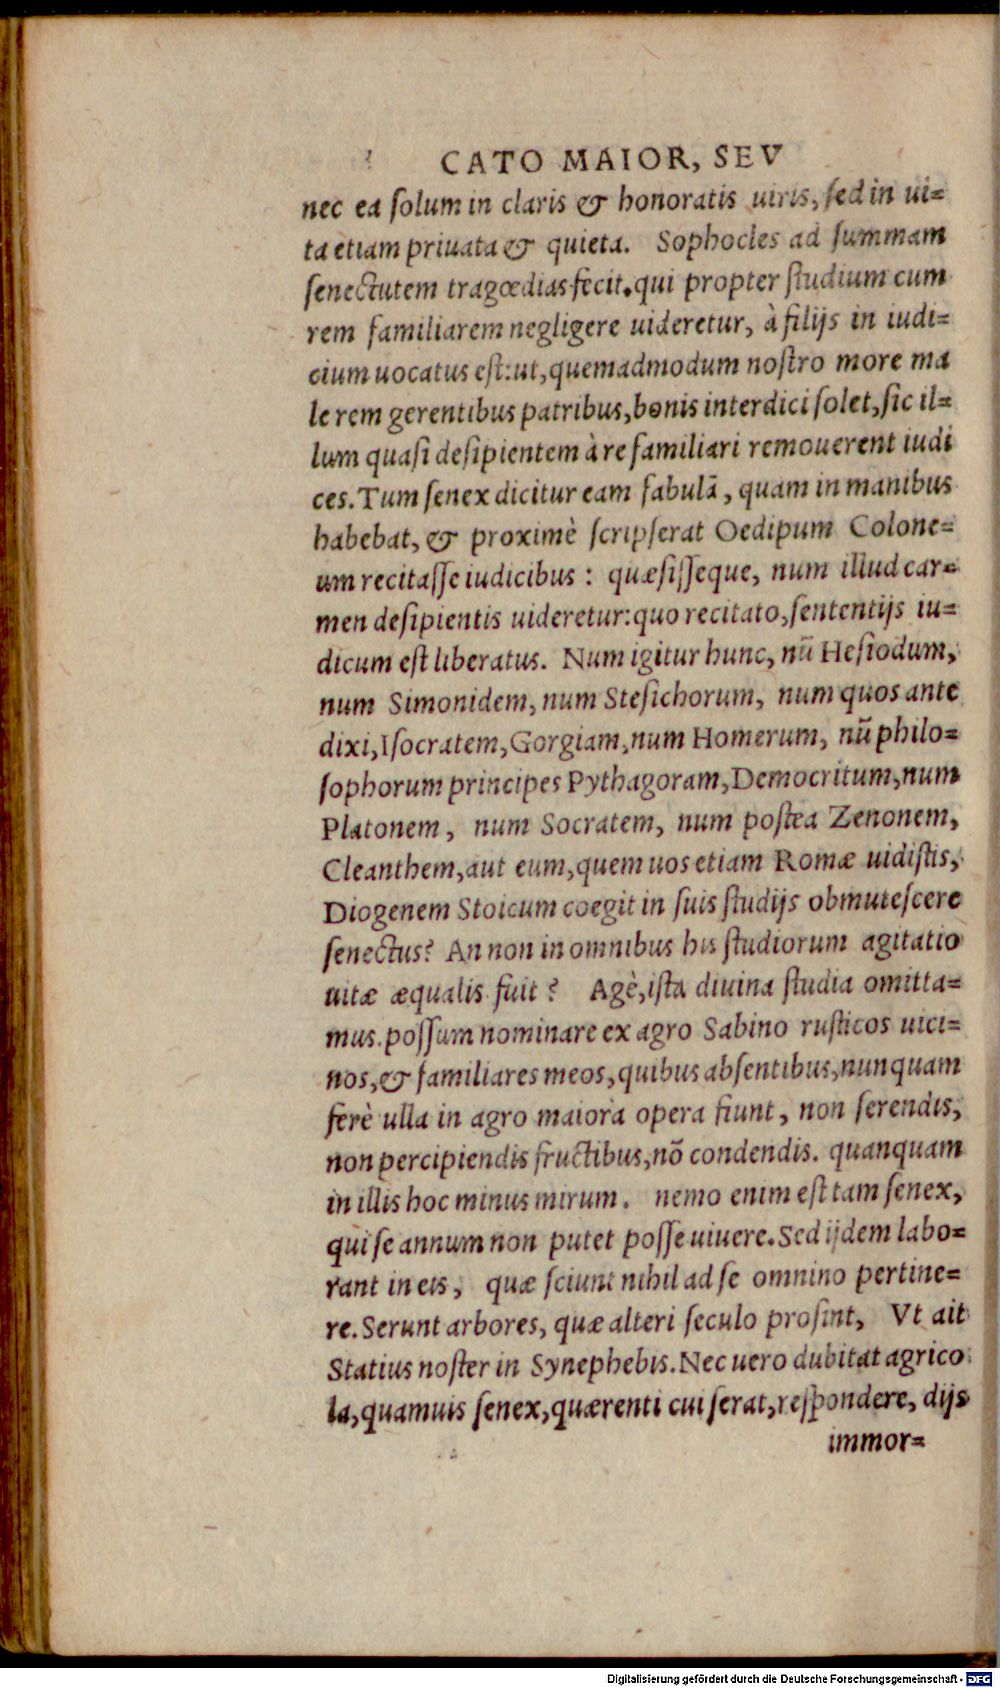 CATO MAIOR, SEV
nec ea ſolum in claris & honoratis uiris, ſed in ui=
ta etiam priuata & quieta. Sophocles ad ſummam
ſenectutem tragœdias fecit. qui propter ſtudium cum
rem familiarem negligere uideretur, à filijs in iudi=
cium uocatus eſt: ut, quemadmodum noſtro more ma
le rem gerentibus patribus, bonis interdici ſolet, ſic il=
lum quaſi deſipientem à re familiari remouerent iudi
ces. Tum ſenex dicitur eam fabulã, quam in manibus
habebat, & proximè ſcripſerat Oedipum Colone=
um recitaſſe iudicibus: quæſiſſeque, num illud car=
men deſipientis uideretur: quo recitato, ſententijs iu=
dicum eſt liberatus. Num igitur hunc, nũ Heſiodum,
num Simonidem, num Steſichorum, num quos ante
dixi, Iſocratem, Gorgiam, num Homerum, nũ philo=
ſophorum principes Pythagoram, Democritum, num
Platonem, num Socratem, num poſtea Zenonem,
Cleanthem, aut eum, quem uos etiam Romæ uidiſtis,
Diogenem Stoicum coegit in ſuis ſtudijs obmuteſcere
ſenectus? An non in omnibus his ſtudiorum agitatio
uitæ æqualis fuit? Agè, iſta diuina ſtudia omitta=
mus. poſſum nominare ex agro Sabino ruſticos uici=
nos, & familiares meos, quibus abſentibus, nunquam
ferè ulla in agro maiora opera fiunt, non ſerendis,
non percipiendis fructibus, nõ condendis. quanquam
in illis hoc minus mirum. nemo enim eſt tam ſenex,
qui ſe annum non putet poſſe uiuere. Sed ijdem labo=
rant in eis, quæ ſciunt nihil ad ſe omnino pertine=
re. Serunt arbores, quæ alteri ſeculo proſint, Vt ait
Statius noſter in Synephebis. Nec uero dubitat agrico
la, quamuis ſenex, quærenti cui ſerat, reſpondere, dijs
immor=
Digitalisierung gefördert durch die Deutsche Forschungsgemeinschaft - DFG